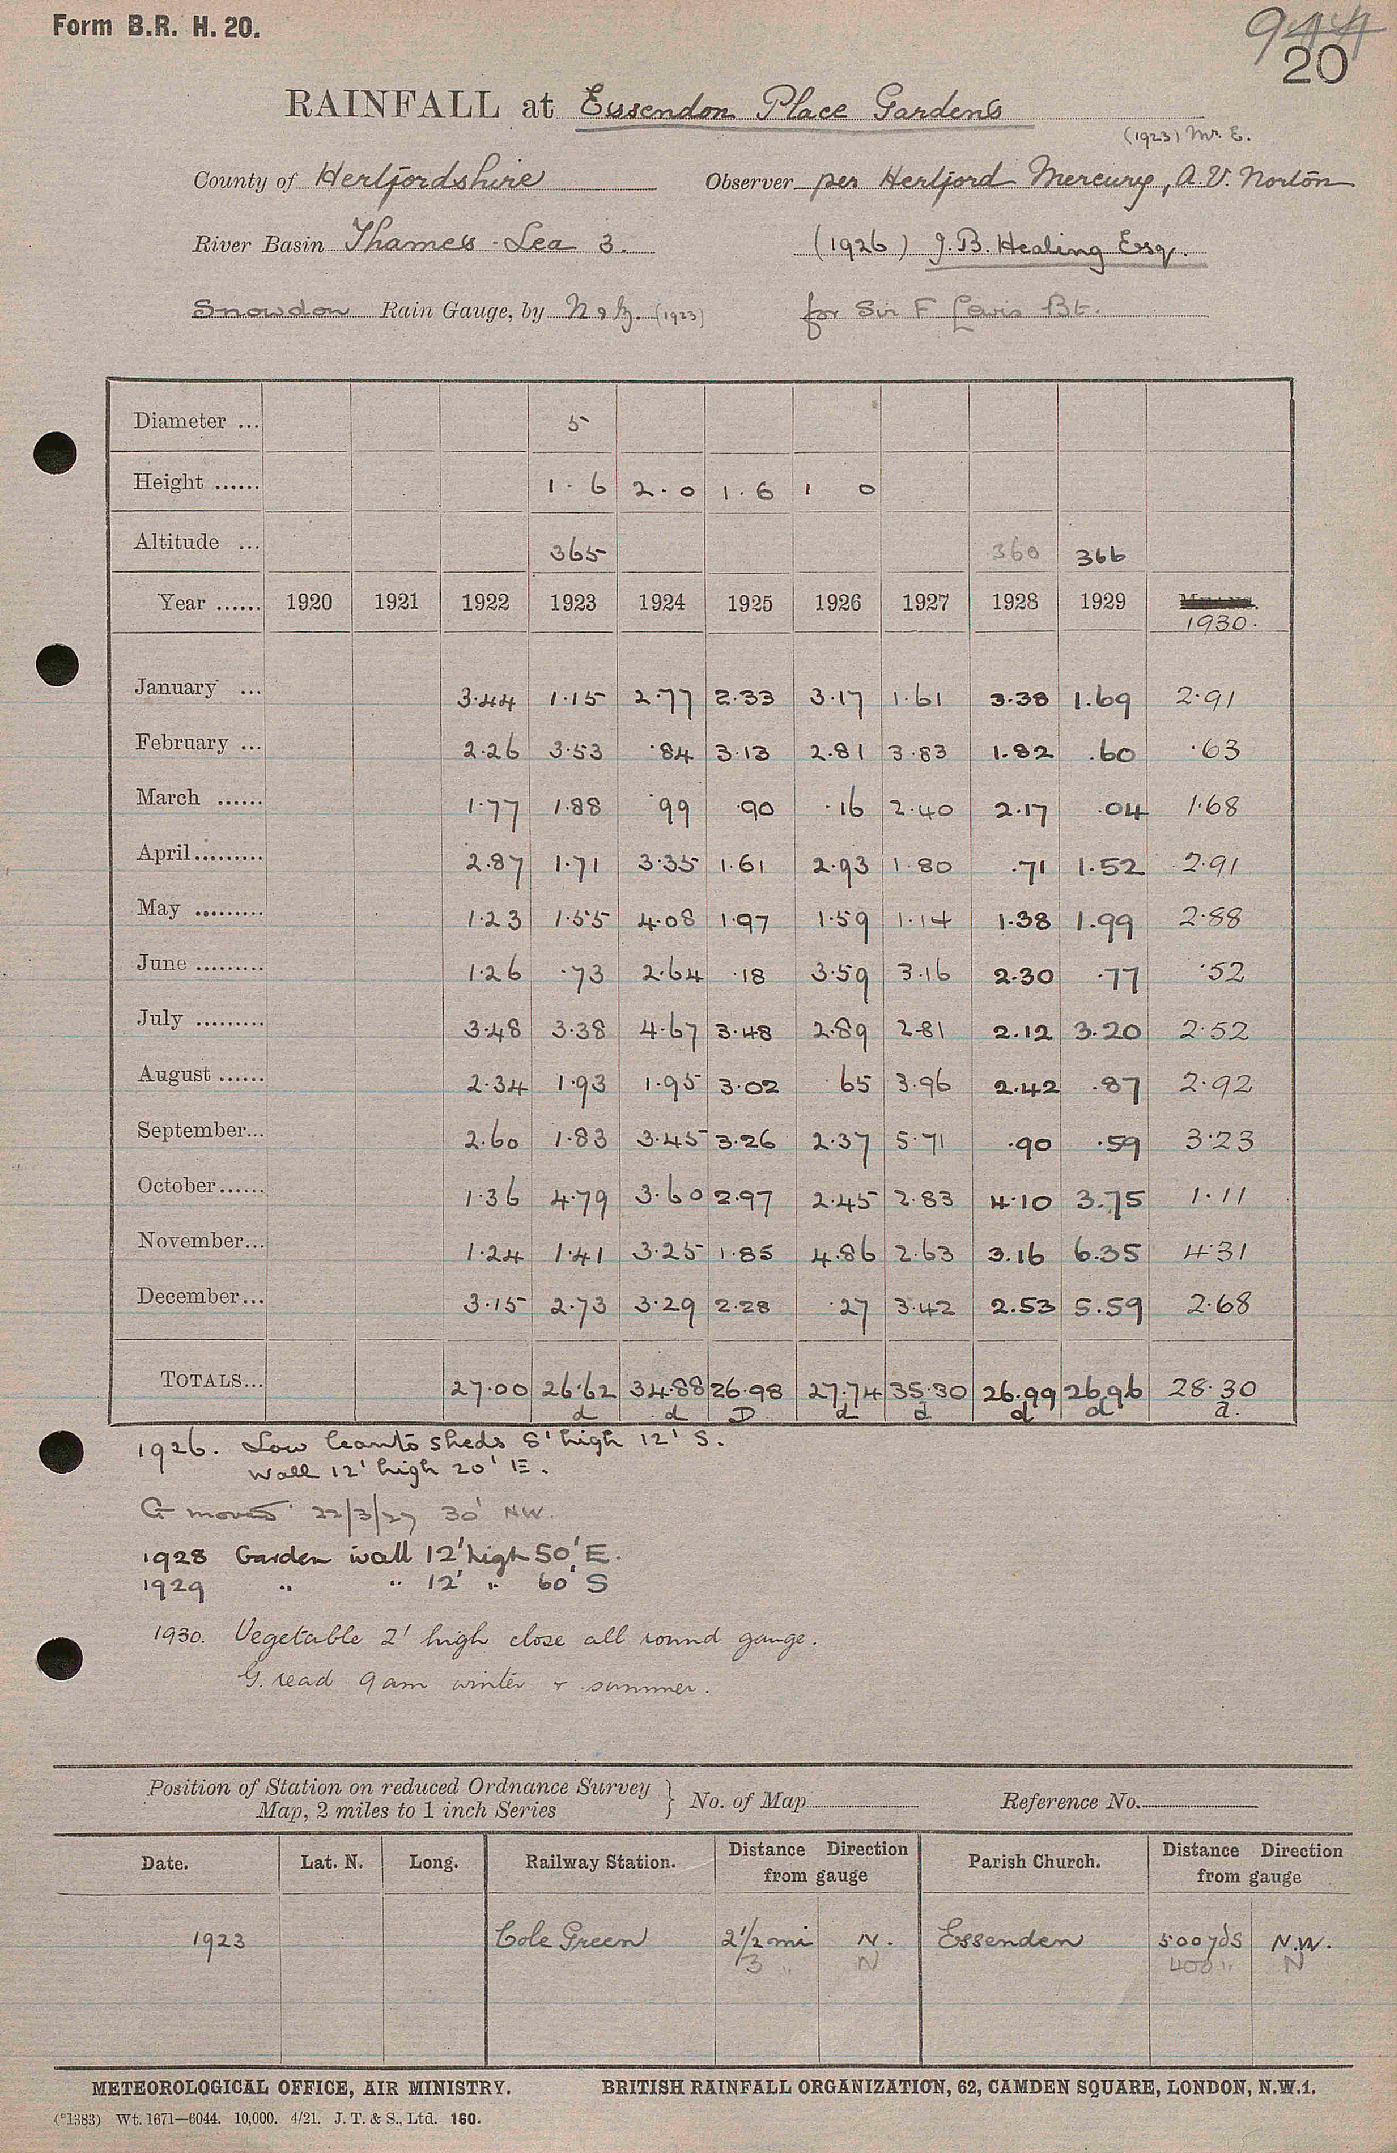 Form B.R. H. 20.
944
20
RAINFALL at Essendon Place Gardens
(1923) Mr. E.
County of Hertfordshire Observer per Hertford Mercury, A.V. Norton
River Basin Thames - Lea 3. (1926) J.B. Healing Esq.
Snowdon Rain Gauge, by N & Z. (1923) for Sir F Lewis Bt.
Diameter ... 5
Height ...... 1 . 6 2 . 0 1 . 6 1 0
Altitude ... 365 360 366
Year ...... 1920 1921 1922 1923 1924 1925 1926 1927 1928 1929 1930.
January ... 3.44 1.15 2.77 2.33 3.17 1.61 3.38 1.69 2.91
February ... 2.26 3.53 .84 3.13 2.81 3.83 1.82 .60 .63
March ...... 1.77 1.88 .99 .90 .16 2.40 2.17 .04 1.68
April......... 2.87 1.71 3.35 1.61 2.93 1.80 .71 1.52 2.91
May ......... 1.23 1.55 4.08 1.97 1.59 1.14 1.38 1.99 2.88
June ......... 1.26 .73 2.64 .18 3.59 3.16 2.30 .77 .52
July ......... 3.48 3.38 4.67 3.48 2.89 2.81 2.12 3.20 2.52
August ...... 2.34 1.93 1.95 3.02 65 3.96 2.42 .87 2.92
September... 2.60 1.83 3.45 3.26 2.37 5.71 .90 .59 3.23
October...... 1.36 4.79 3.60 2.97 2.45 2.83 4.10 3.75 1.11
November... 1.24 1.41 3.25 1.85 4.86 2.63 3.16 6.35 4.31
December... 3.15 2.73 3.29 2.28 .27 3.42 2.53 5.59 2.68
TOTALS... 27.00 26.62 34.88 26.98 27.74 35.30 26.99 26.96 28.30
d d D d d d d d.
1926. Low leanto sheds 8' high 12' S.
Wall 12' high 20' E.
G moved 22/3/27 30' NW.
1928 Garden wall 12' high 50' E.
1929 " " 12' " 60' S
1930. Vegetable 2' high close all round gauge.
G. read 9am winter & summer.
Position of Station on reduced Ordnance Survey
Map, 2 miles to 1 inch Series } No. of Map Reference No.
Date. Lat. N. Long. Railway Station. Distance Direction from gauge Parish Church. Distance Direction from gauge
1923 Cole Green 2 1/2 mi N. Essenden 500 yds N.W.
3 " N 400 " N
METEOROLOGICAL OFFICE, AIR MINISTRY. BRITISH RAINFALL ORGANIZATION, 62, CAMDEN SQUARE, LONDON, N.W.1.
(*1383) Wt. 1671—6044. 10,000. 4/21. J. T. & S., Ltd. 160.